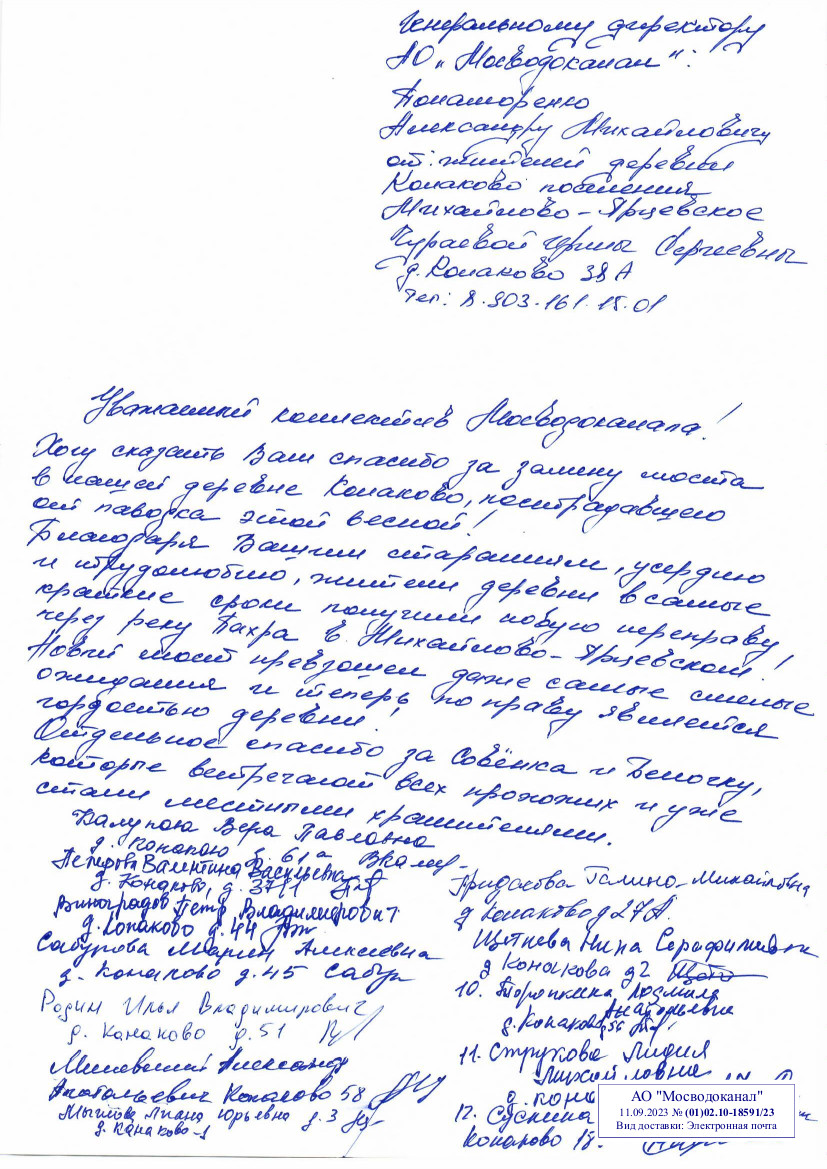 Генеральному директору
АО „Мосводоканал":
Пономаренко
Александру Михайловичу
от: жителей деревни
Конаково поселения
Михайлово-Ярцевское
Чураевой Ирины Сергеевны
д. Конаково 38 А
тел: 8.903.161.15.01
Уважаемый коллектив Мосводоканала!
Хочу сказать Вам спасибо за замену моста
в нашей деревне Конаково, пострадавшего
от паводка этой весной!
Благодаря Вашим стараниям, усердию
и трудолюбию, жители деревни в самые
краткие сроки получили новую переправу
через реку Пахра в Михайлово-Ярцевском!
Новый мост превзошел даже самые смелые
ожидания и теперь по праву является
гордостью деревни!
Отдельное спасибо за Совёнка и Белочку,
которые встречают всех прохожих и уже
стали местными хранителями.
Вера Павловна
д. 61а
Петрова Валентина Васильевна
д. Конаково, д. 37/1
Виноградов Петр Владимирович
д. Конаково д. 44
Сабурова Мария Алексеевна
д. Конаково д. 45 Сабур
Родин Илья Владимирович
д. Конаково д. 51
Александр
Анатольевич Конаково 58
Юрьевна д. 3
д. Конаково
Галина Михайловна
д Конаково д 27А.
Щетнева Нина Серафимовна
д Конакова д2
10. Торопкина Людмила
Анатольевна
д. Конаково 56
11. Струкова Лидия
Михайловна
д.
12. Сускина
Конаково 18.
АО "Мосводоканал"
11.09.2023 № (01)02.10-18591/23
Вид доставки: Электронная почта